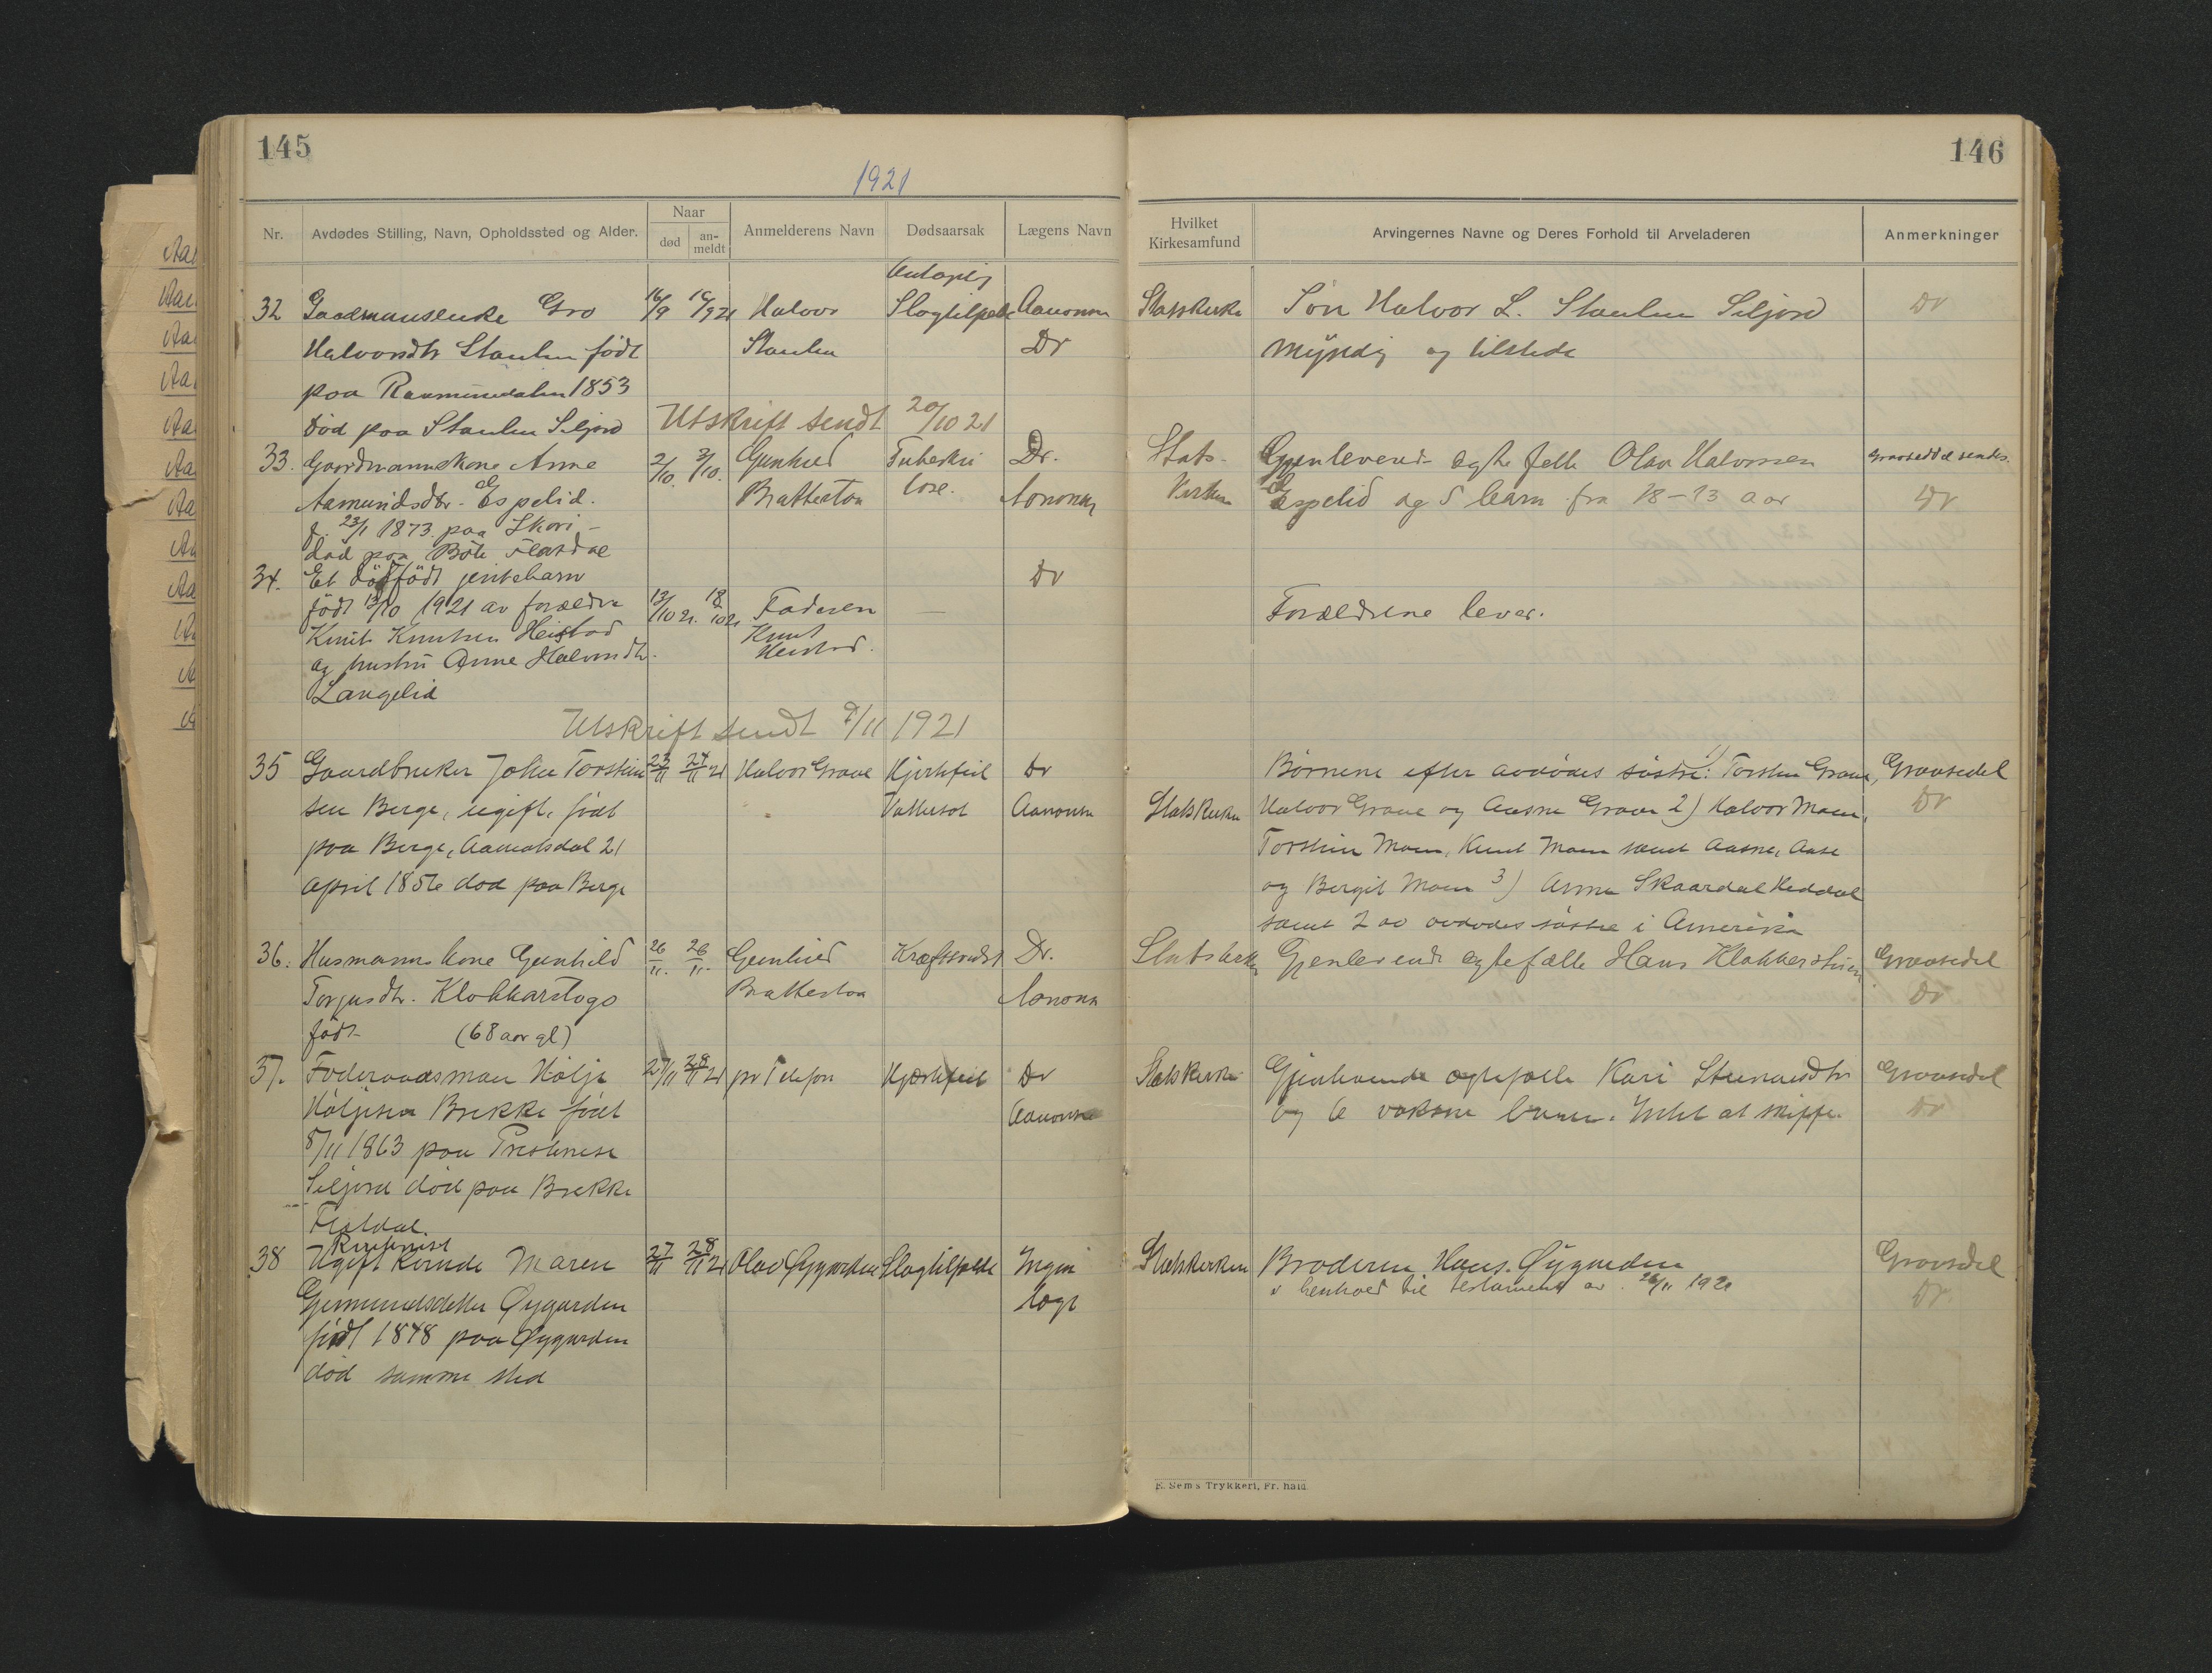 145
1921
Nr.
Avdødes Stilling, Navn, Opholdssted og Alder.
Naar
død
an-
meldt
Anmelderens Navn
Dødsaarsak
Lægens Navn
32 Gro 16/9 Halvor Slagtilfælde Aanonsen
Halvorsdtr Staulen født Staulen Dr
paa 1853
død paa Staulen Seljord Utskrift sendt 20/10 21
33. Gaardmannskone Anne 2/10. 3/10. Gunhild Tuberku Dr.
Aamundsdtr. Espelid. Bratterton lose. Aanonsen
f. 23/1 1873. paa Skori -
død paa Flatdal
34. Et dødfødt jentebarn Dr
født 13/10 1921 av forældre 13/10 21. 18/10 21 Faderen —
Knut Knutsen Heistad Knut
og hustru Anne Halvorsdtr. Heistad.
Langelid
Utskrift sendt 7/11 1921
35 Gaardbruker John Torstein 23/11 24/11 21 Halvor Grave Hjertefeil Dr
sen Berge, ugift, født Vattersot Aanonsen
paa Berge, Aamotsdal 21
april 1856 død paa Berge
36. Husmanns kone Gunhild 26/11. 26/11. Gunhild Kræftsvulst Dr.
Torjusdtr. Klokkarstogo Bratterton Aanonsen
født (68 aar gl)
37. Føderaadsman Hølje 27/11 28/11 21 pr Telefon Hjertefeil Dr
Høljesen Brekke født Aanonsen
8/11 1863 paa Prestnese
Seljord død paa Brekke
Flatdal.
38 Ugift kvinde Maren 27/11 28/11 21 Olav Øygarden Slagtilfælde Ingen
Gjermundsdatter Øygarden læge
født 1848 paa Øygarden
død samme sted
146
Hvilket
Kirkesamfund
Arvingernes Navne og Deres Forhold til Arveladeren
Anmerkninger
Statskirke Søn Halvor L. Staulen Seljord Dr
myndig og tilstede
Stats- Gjenlevende egtefelle Olav Halvorsen Gravseddel sendes.
kirken Espelid og 5 barn fra 18-13 aar Dr
Forældrene lever.
Børnene efter avdødes søstre: 1) Torstein Grave, Gravsedel
Statskirken Halvor Grave og Aasne Grave 2) Halvor Moen, Dr
Torstein Moen, Knut Moen samt Aasne, Aase
og Bergit Moen 3) Anne Skaardal Heddal
samt 2 av avdødes søstre i Amerika
Statskirke Gjenlevende egtefælle Hans Klokkerstuen Gravsedel
Dr
Statskirke Gjenlevende egtefælle Kari Steinarsdtr Gravsedel
og 6 voksne barn. Intet at skifte. Dr
Statskirken Broderen Hans Øygarden Gravsedel
i henhold til testament av 26/11 1921 Dr
E. Sem's Trykkeri, Fr. hald.